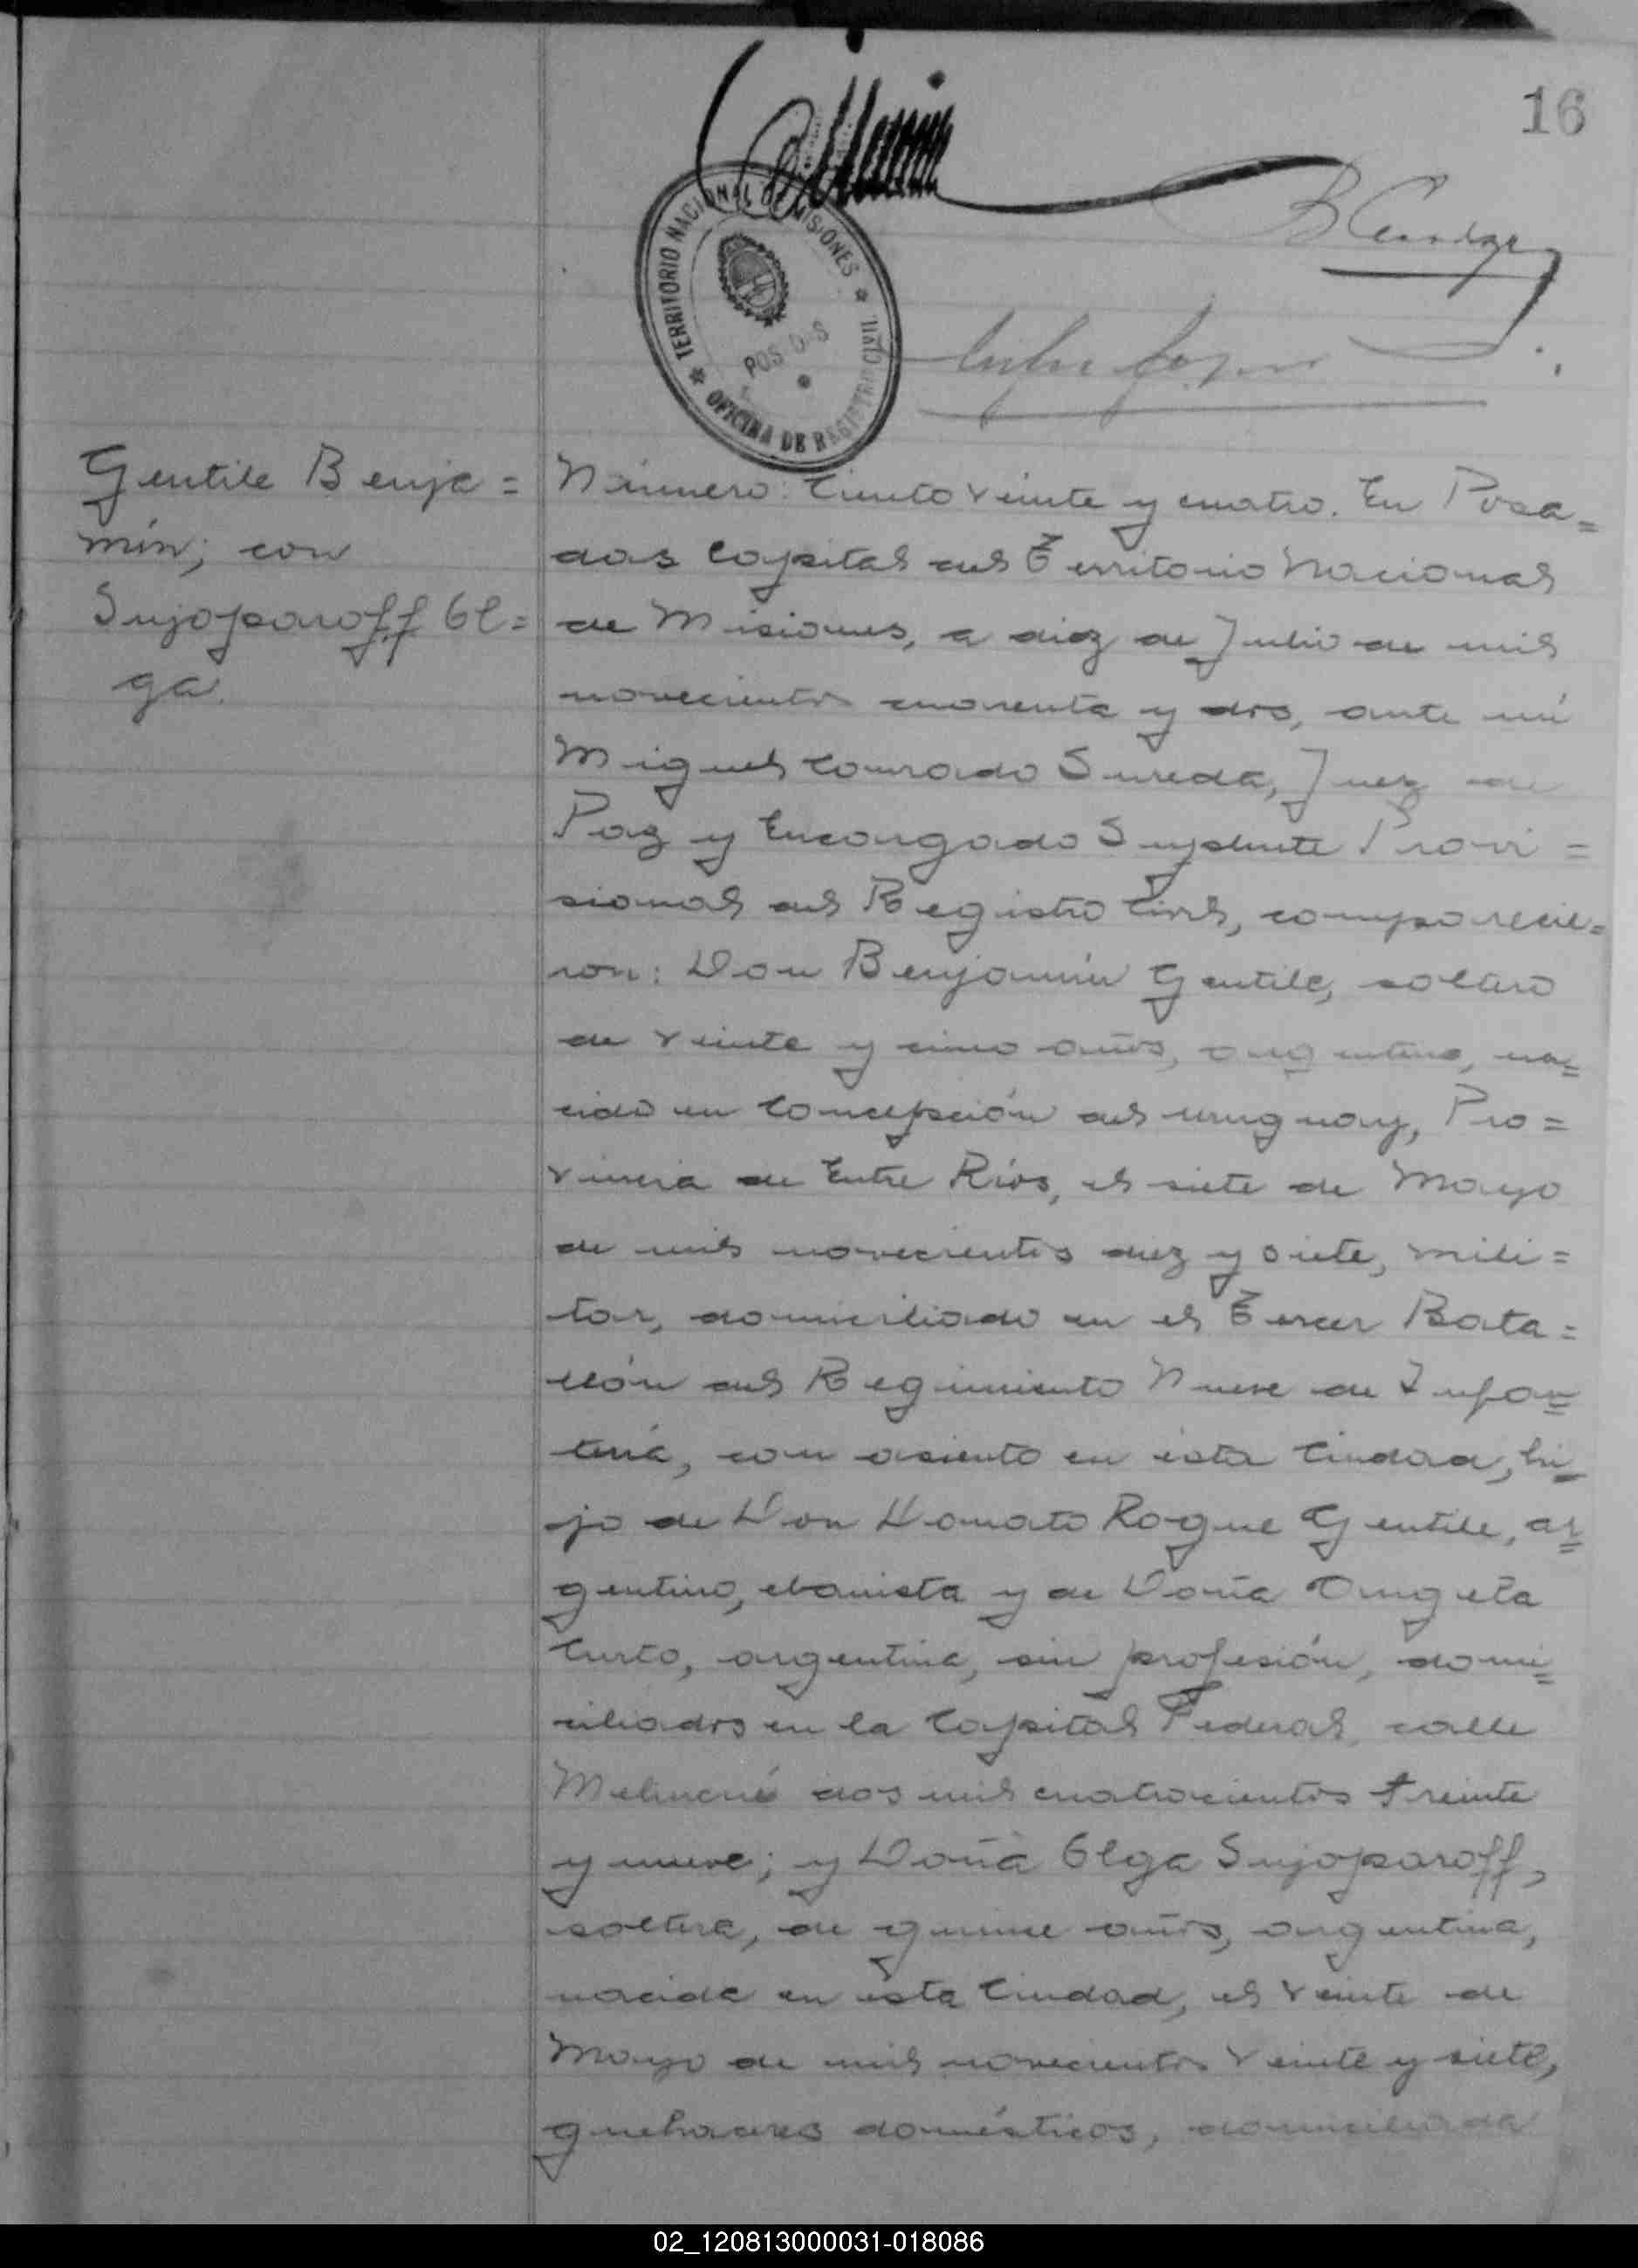 16
TERRITORIO NACIONAL DE MISIONES
POSADAS
OFICINA DE REGISTRO CIVIL
Gentile Benja=
mín; con
Sujoparoff Ol=
ga.
Número: Ciento veinte y cuatro. En Posa=
das Capital del Territorio Nacional
de Misiones, a diez de Julio de mil
novecientos cuarenta y dos, ante mí
Miguel Conrado Sureda, Juez de
Paz y Encargado Suplente Provi=
sional del Registro Civil, comparecie=
ron: Don Benjamín Gentile, soltero
de veinte y cinco años, argentino, na=
cido en Concepción del Uruguay, Pro=
vincia de Entre Ríos, el siete de Mayo
de mil novecientos diez y siete, mili=
tar, domiciliado en el Tercer Bata=
llón del Regimiento Nueve de Infan=
tería, con asiento en ésta Ciudad, hi=
jo de Don Donato Roque Gentile, ar=
gentino, ebanista y de Doña Angela
Curto, argentina, sin profesión, domi=
ciliados en la Capital Federal, calle
Melincué dos mil cuatrocientos treinte
y nueve; y Doña Olga Sujoparoff,
soltera, de quince años, argentina,
nacida en ésta Ciudad, el veinte de
Mayo de mil novecientos veinte y siete,
quehaceres domésticos, domiciliada
02_120813000031-018086